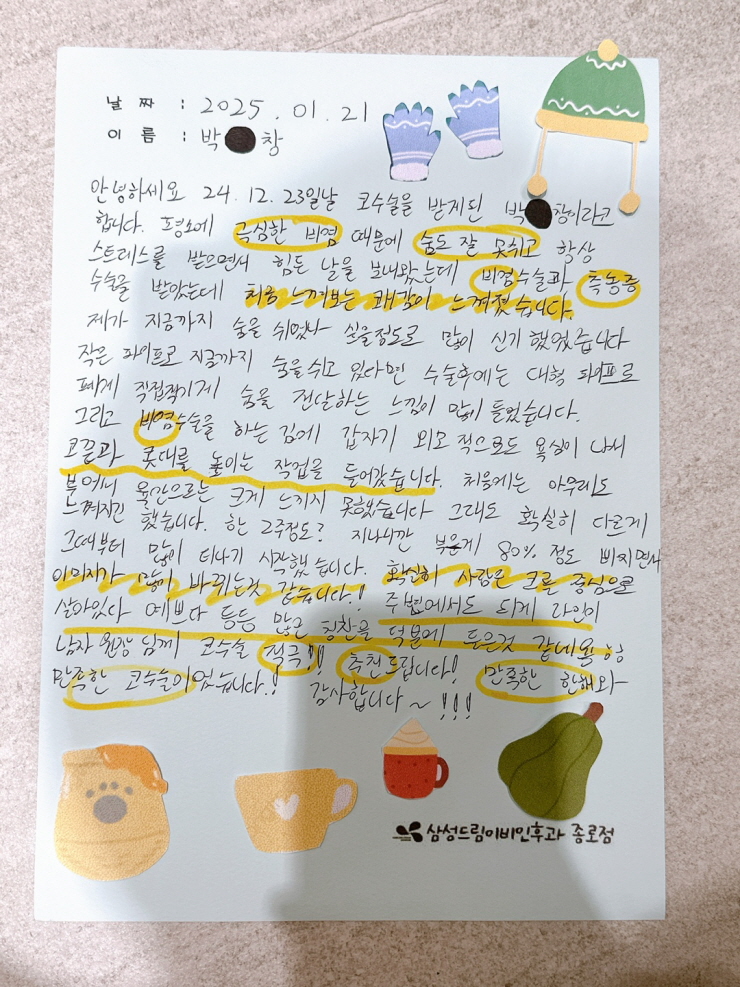 날 짜 : 2025. 01. 21
이 름 : 박 창
안녕하세요 24. 12. 23일날 코수술을 받게된 박 창이라고
합니다. 평소에 극심한 비염 때문에 숨도 잘 못쉬고 항상
스트레스를 받으면서 힘든 날을 보내왔는데 비염수술과 축농증
수술을 받았는데 처음 느껴보는 쾌감이 느껴졌습니다.
제가 지금까지 숨을 쉬었나 싶을정도로 많이 신기했었습니다
작은 파이프로 지금까지 숨을쉬고 있다면 수술후에는 대형 파이프로
폐에 직접적이게 숨을 전달하는 느낌이 많이 들었습니다.
그리고 비염수술을 하는 김에 갑자기 외모적으로도 욕심이 나서
코끝과 콧대를 높이는 작업을 들어갔습니다. 처음에는 아무래도
붓어서 육안으로는 크게 느끼지 못했습니다 그래도 확실히 다르게
느껴지긴 했습니다. 한 2주정도? 지나니깐 붓게 80% 정도 빠지면서
그때부터 많이 티나기 시작했습니다. 확실히 사람은 코를 중심으로
이미지가 많이 바뀌는것 같습니다! 주변에서도 되게 라인이
살아있다 예쁘다 등등 많은 칭찬을 덕분에 들은것 같네용 항
남자 원장님께 코수술 적극!! 추천드립니다! 만족한 한해와
만족한 코수술이었습니다! 감사합니다~!!!
삼성드림이비인후과 종로점